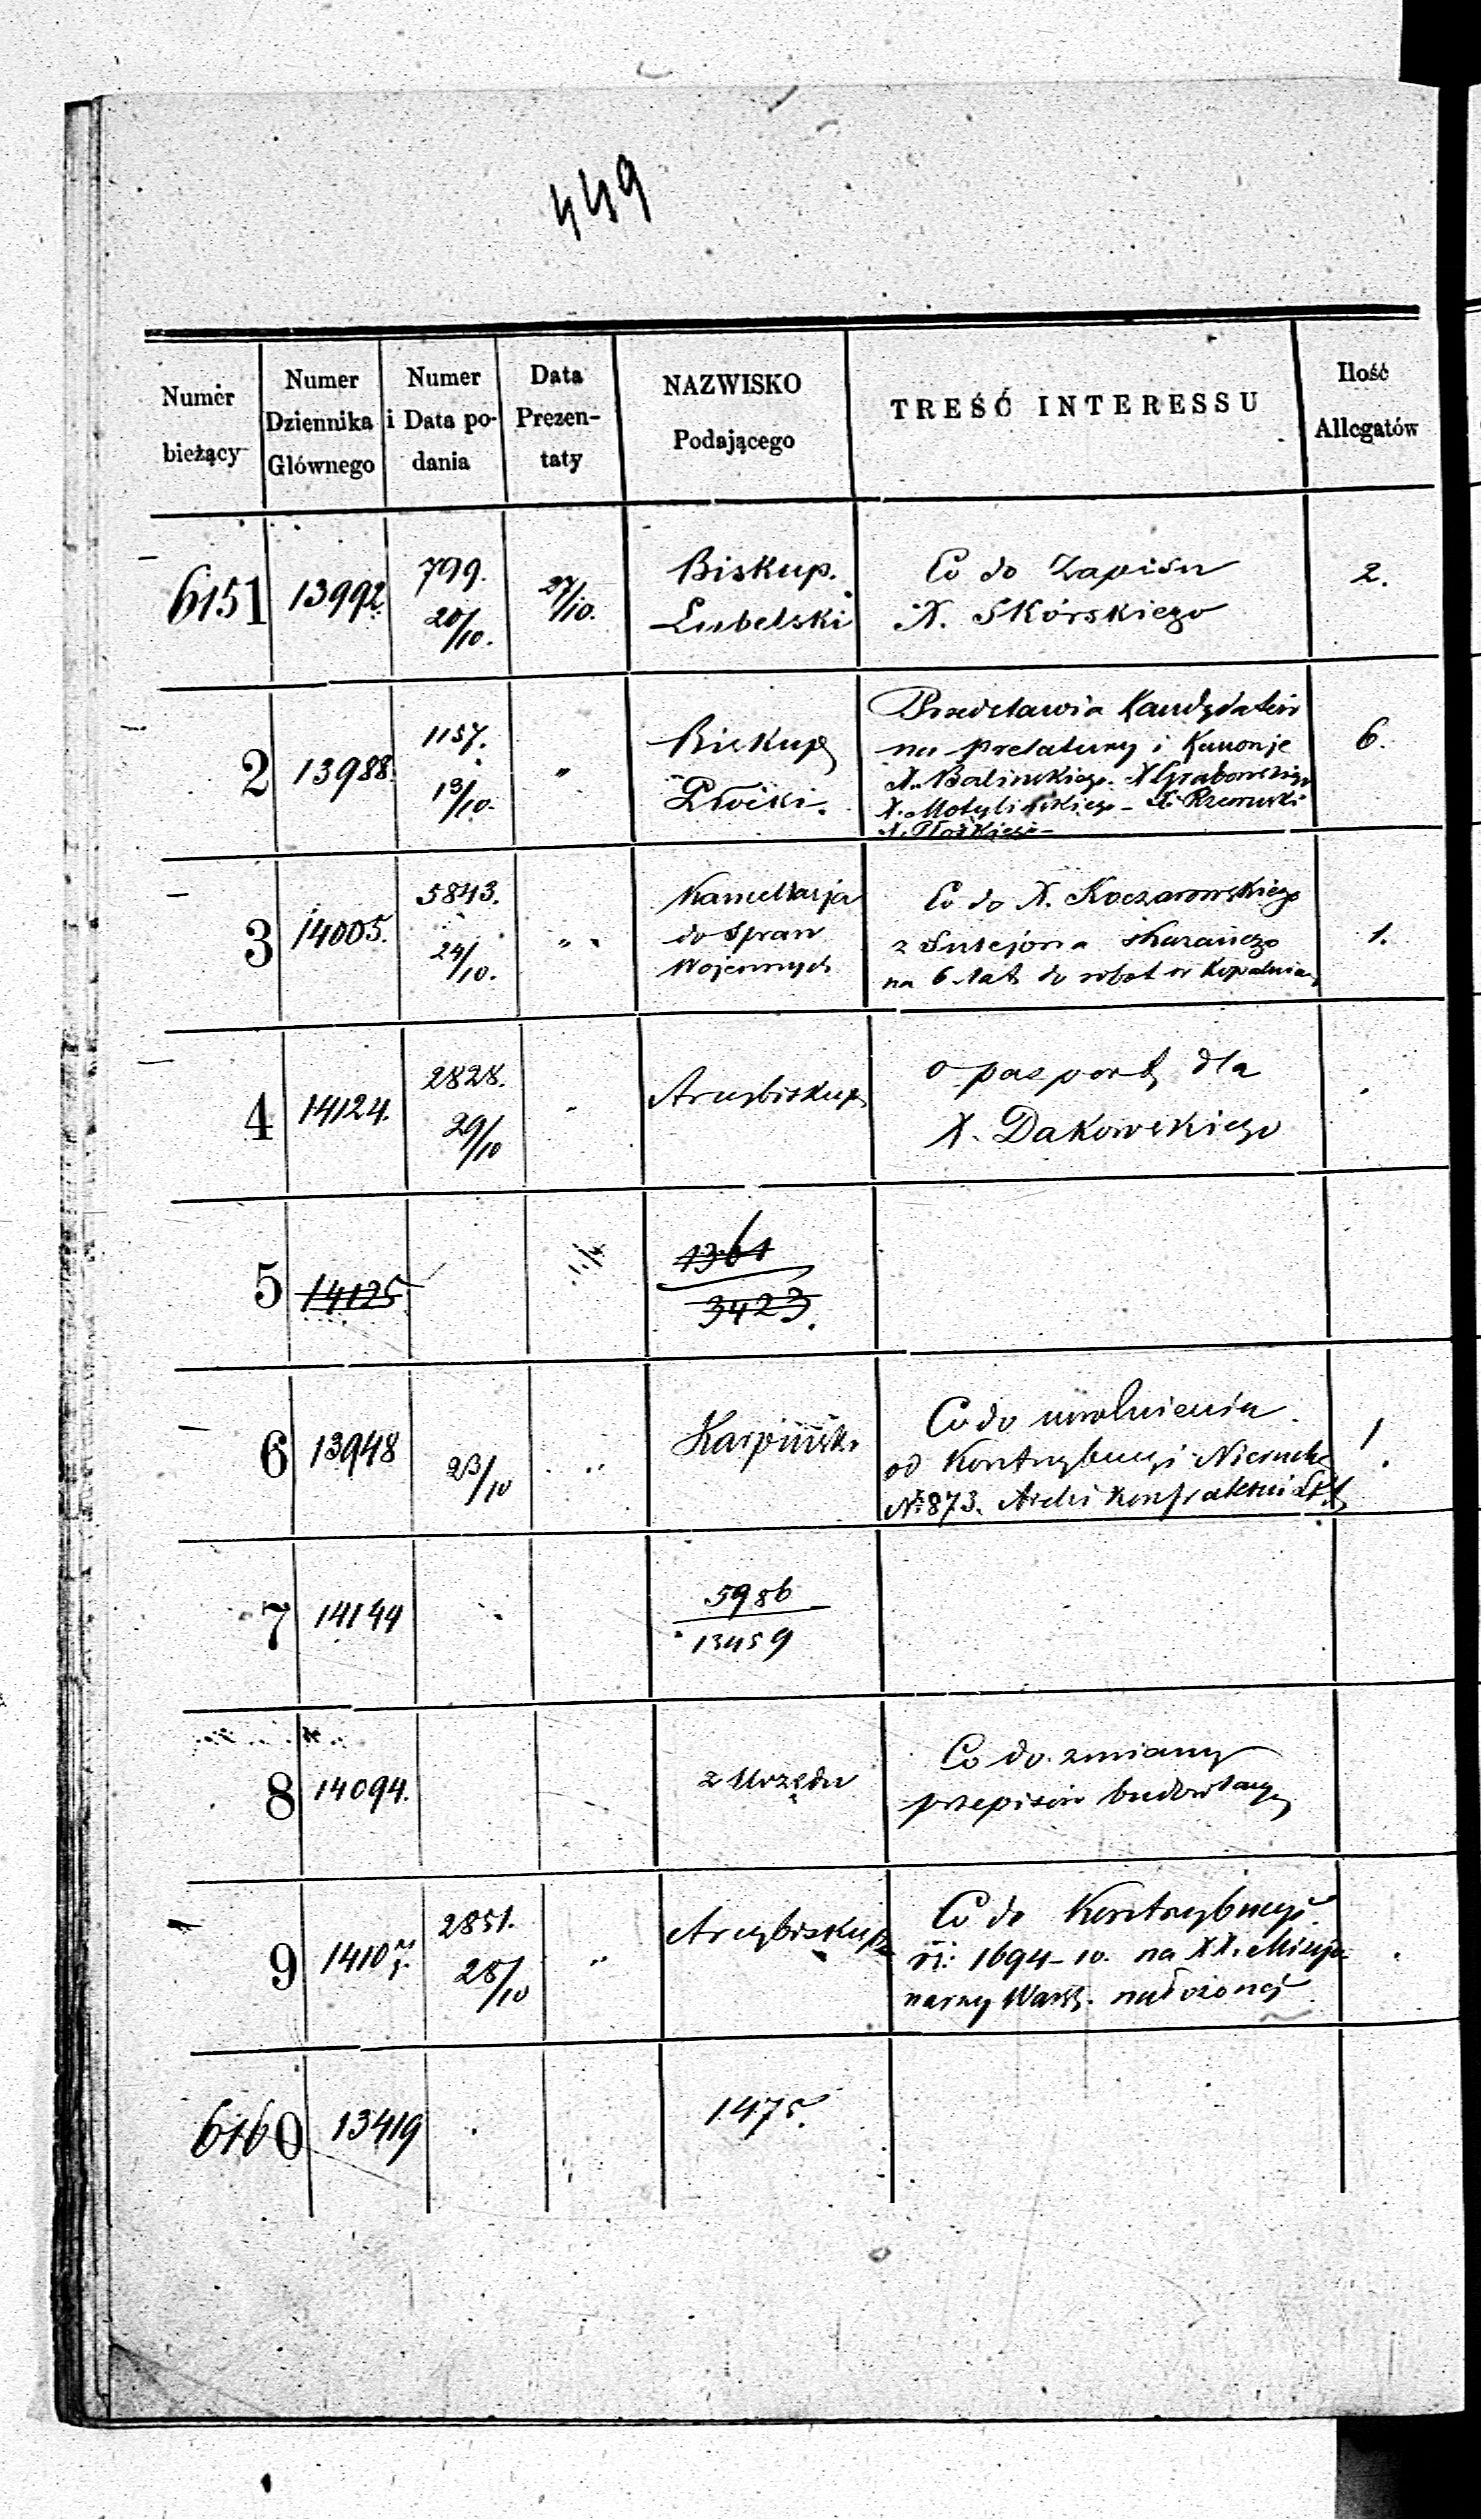 449
Numer bieżący | Numer Dziennika Głównego | Numer i Data podania | Data Prezentaty | NAZWISKO Podającego | TREŚĆ INTERESSU | Ilość Allegatów
6151 13992. 799. 20/10. 27/10. Biskup. Co do Zapisu 2.
Lubelski X. Skórskiego
2 13988. 1157. 13/10. " Biskup Przedstawia Kandydatów 6.
Płocki. na prelatury i Kanonje
X. Balińskiego. X Grabowskiego
X. Motylińskiego - X.
3 14005. 5843. 24/10. " Kancellarja Co do X. Koczarowskiego 1.
do Spraw z skazanego
Wojennych na 6. lat do robot w Kopalniach
4 14124. 2828. 29/10 " Arcybiskup o pasport dla
X. Dakowskiego
5 14125 1361
3423.
6 13948 23/10 " Karpiński Co do uwolnienia 1.
od Kontrybucyi Nieruch
No 873. Archi Konfraternii
7 14144 5986
13459
8 14094. z Urzędu Co do zmiany
przepisów budowlanych
9 14107. 2851. 28/10 " Arcybiskup Co do Kontrybucyi
rs: 1694-10. na XX. Misyjo-
narzy Warsz. nałożonej
6160 13419 1475.